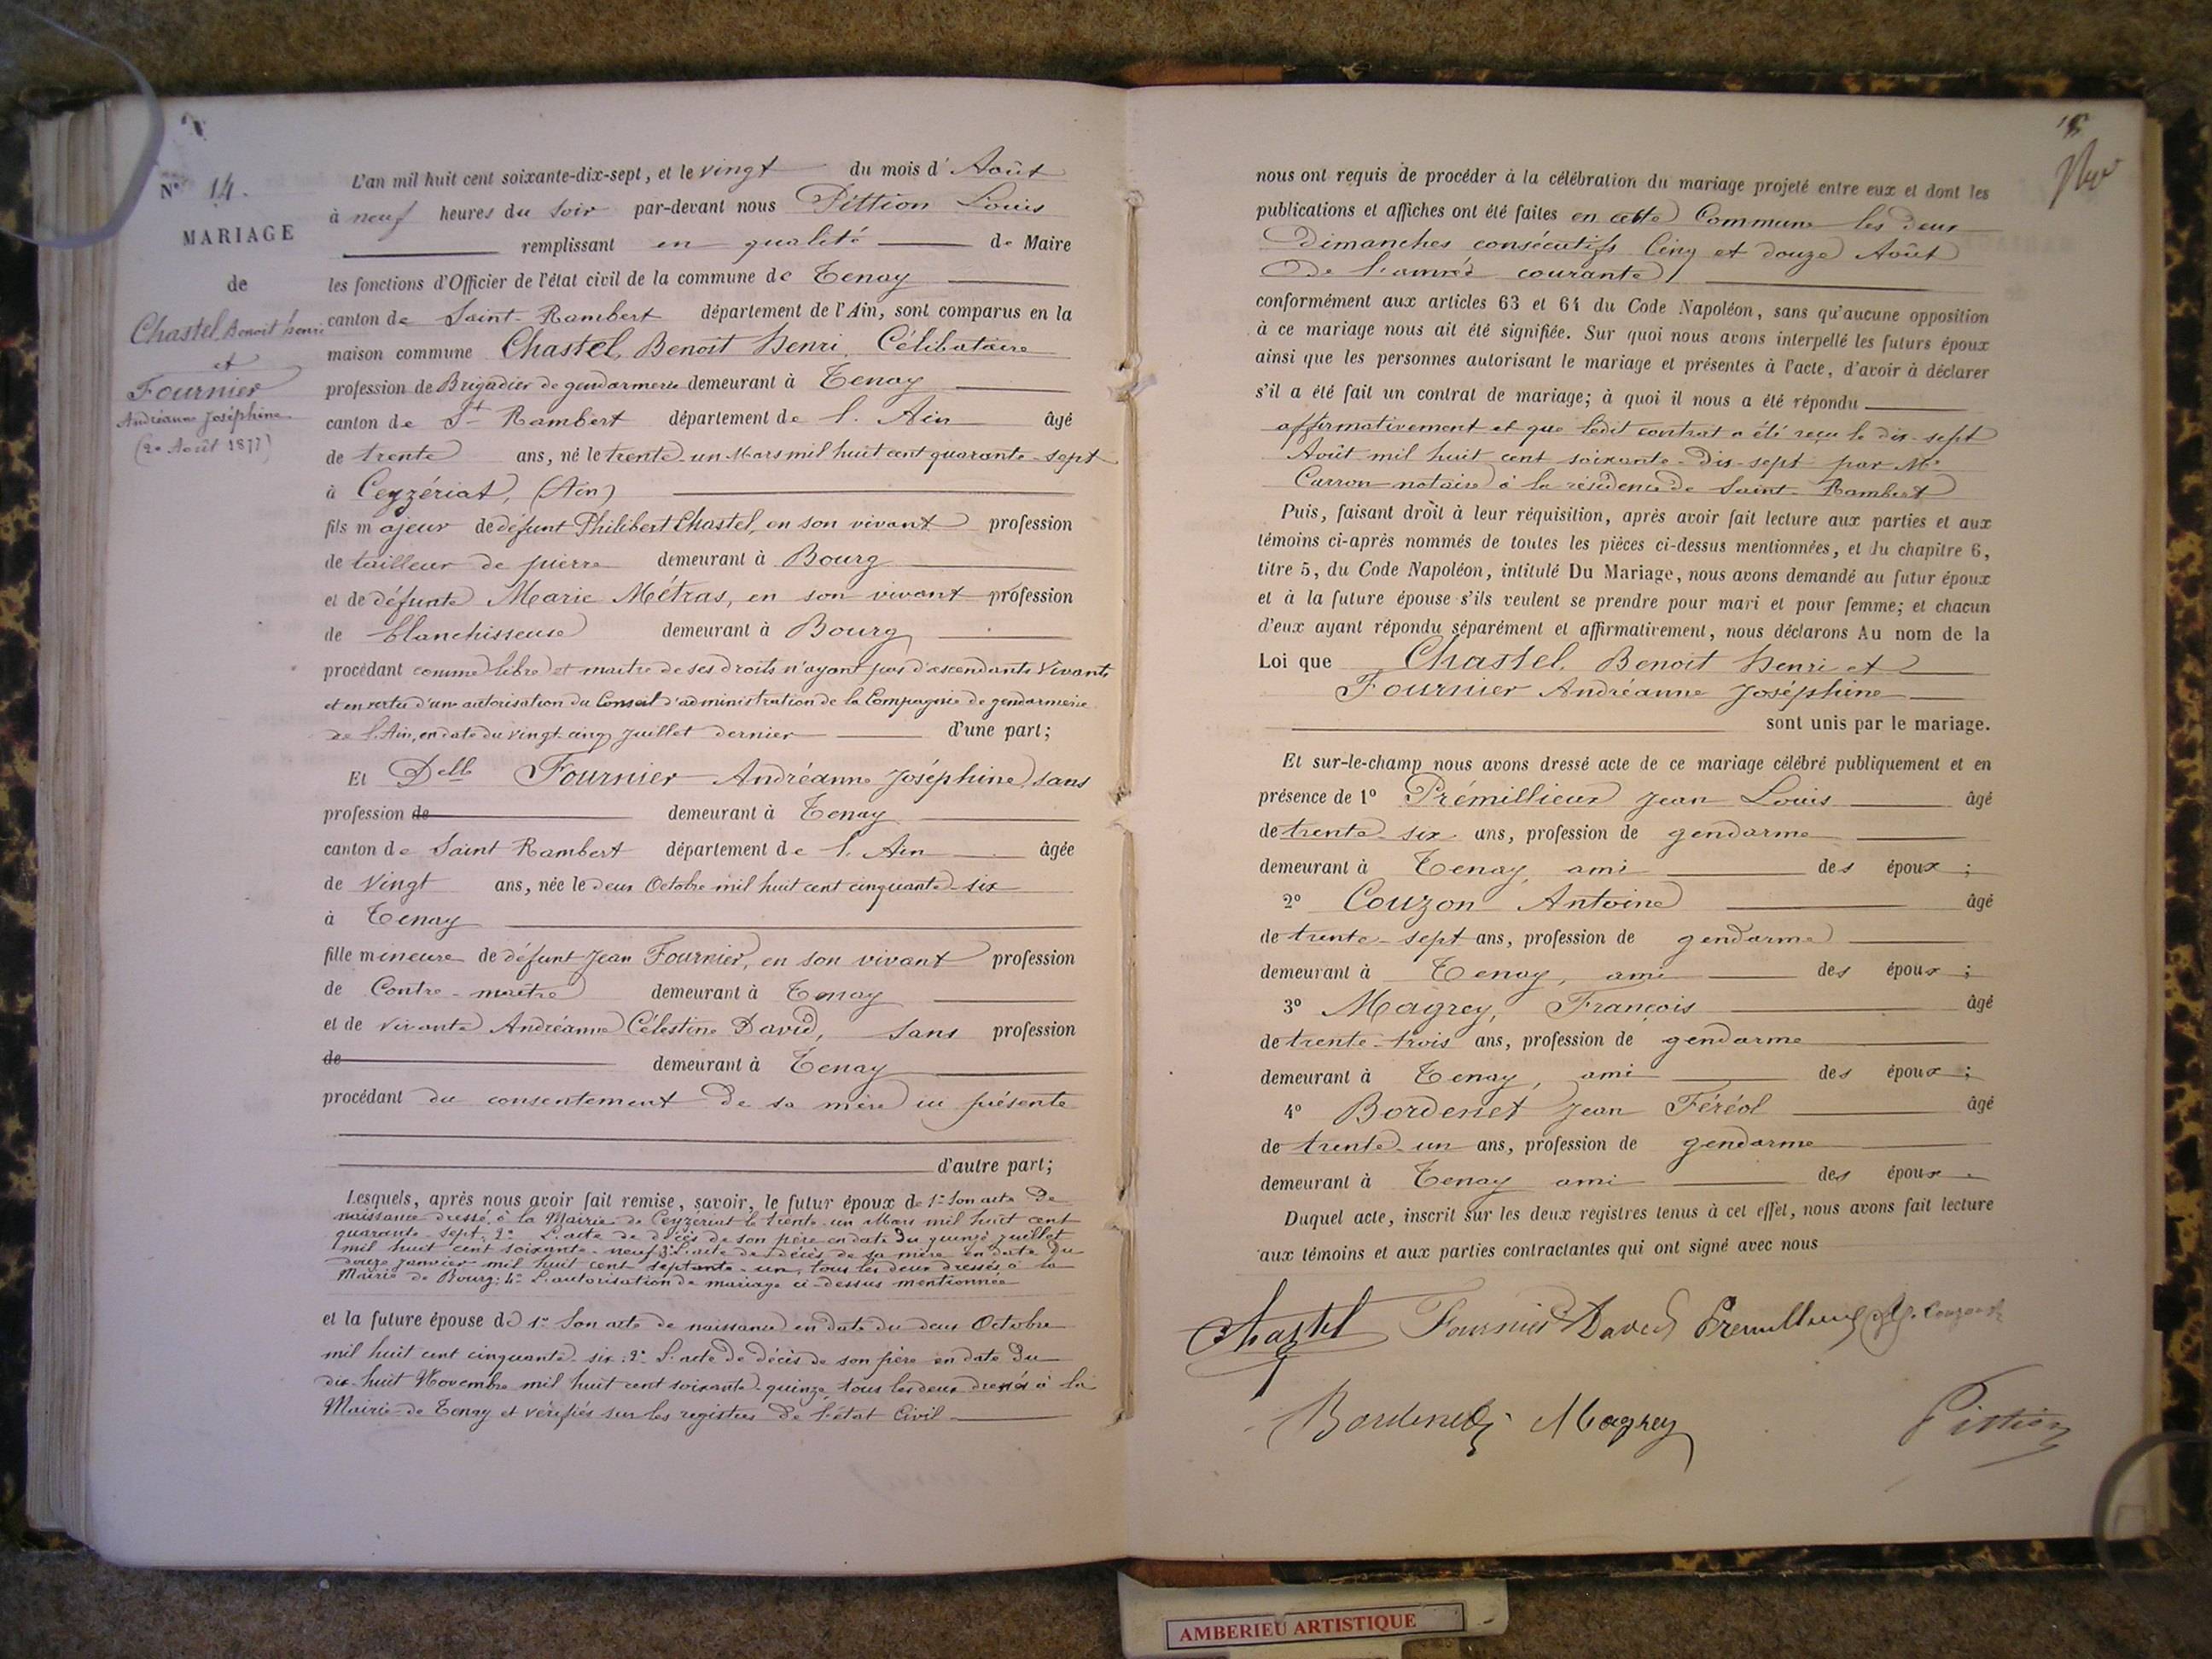 N° 14.
MARIAGE
de
Chastel Benoit henri
et
Fournier
Andréanne Joséphine
(20 Août 1877)
L'an mil huit cent soixante-dix-sept, et le vingt du mois d'Août
à neuf heures du soir par-devant nous Pittion Louis
remplissant en qualité de Maire
les fonctions d'Officier de l'état civil de la commune de Tenay
canton de Saint-Rambert département de l'Ain, sont comparus en la
maison commune Chastel, Benoit henri, Célibataire
profession de Brigadier de gendarmerie demeurant à Tenay
canton de St Rambert département de l'Ain âgé
de trente ans, né le trente-un Mars mil huit cent quarante-sept
à Ceyzériat, (Ain)
fils majeur de défunt Philibert Chastel, en son vivant profession
de tailleur de pierre demeurant à Bourg
et de défunte Marie Métras, en son vivant profession
de blanchisseuse demeurant à Bourg
procédant comme libre et maître de ses droits n'ayant pas d'ascendants Vivants
et en vertu d'une autorisation du Conseil d'administration de la Compagnie de gendarmerie
de l'Ain, en date du vingt cinq Juillet dernier d'une part;
Et Delle Fournier Andréanne Joséphine, sans
profession de demeurant à Tenay
canton de Saint Rambert département de l'Ain âgée
de Vingt ans, née le deux Octobre mil huit cent cinquante-six
à Tenay
fille mineure de défunt Jean Fournier, en son vivant profession
de Contre-maître demeurant à Tenay
et de vivante Andréanne Célestine David, sans profession
de demeurant à Tenay
procédant du consentement de sa mère ici présente
d'autre part;
Lesquels, après nous avoir fait remise, savoir, le futur époux de 1° Son acte de
naissance dressé à la Mairie de Ceyzériat le trente-un Mars mil huit cent
quarante-sept; 2° L'acte de décès de son père en date du quinze juillet
mil huit cent soixante-neuf; 3° L'acte de décès de sa mère en date du
douze janvier mil huit cent septante-un, tous les deux dressés à la
Mairie de Bourg; 4° L'autorisation de mariage ci-dessus mentionnée
et la future épouse de 1° Son acte de naissance en date du deux Octobre
mil huit cent cinquante-six; 2° L'acte de décès de son père en date du
dix-huit Novembre mil huit cent soixante-quinze, tous les deux dressés à la
Mairie de Tenay et vérifiés sur les registres de l'état Civil
nous ont requis de procéder à la célébration du mariage projeté entre eux et dont les
publications et affiches ont été faites en cette Commune les deux
Dimanches consécutifs Cinq et douze Août
de l'année courante
conformément aux articles 63 et 64 du Code Napoléon, sans qu'aucune opposition
à ce mariage nous ait été signifiée. Sur quoi nous avons interpellé les futurs époux
ainsi que les personnes autorisant le mariage et présentes à l'acte, d'avoir à déclarer
s'il a été fait un contrat de mariage; à quoi il nous a été répondu
affirmativement et que ledit contrat a été reçu le dix-sept
Août mil huit cent soixante-dix-sept par Me
Carron notaire à la résidence de Saint-Rambert
Puis, faisant droit à leur réquisition, après avoir fait lecture aux parties et aux
témoins ci-après nommés de toutes les pièces ci-dessus mentionnées, et du chapitre 6,
titre 5, du Code Napoléon, intitulé Du Mariage, nous avons demandé au futur époux
et à la future épouse s'ils veulent se prendre pour mari et pour femme; et chacun
d'eux ayant répondu séparément et affirmativement, nous déclarons Au nom de la
Loi que Chastel Benoit henri et
Fournier Andréanne Joséphine
sont unis par le mariage.
Et sur-le-champ nous avons dressé acte de ce mariage célébré publiquement et en
présence de 1° Prémillieux Jean Louis âgé
de trente-six ans, profession de gendarme
demeurant à Tenay, ami des époux;
2° Couzon Antoine âgé
de trente-sept ans, profession de gendarme
demeurant à Tenay, ami des époux;
3° Magrey, François âgé
de trente-trois ans, profession de gendarme
demeurant à Tenay, ami des époux;
4° Bordenet Jean Féréol âgé
de trente-un ans, profession de gendarme
demeurant à Tenay ami des époux
Duquel acte, inscrit sur les deux registres tenus à cet effet, nous avons fait lecture
aux témoins et aux parties contractantes qui ont signé avec nous
Chastel Fournier David Premillieux Couzon
Bordenet Magrey Pittion
AMBERIEU ARTISTIQUE